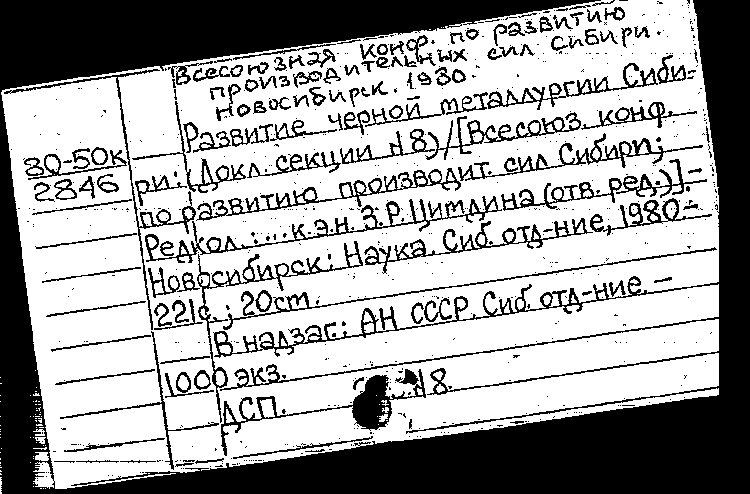 Всесоюзная конф. по развитию
производительных сил Сибири.
Новосибирск. 1980.
Развитие черной металлургии Сиби-
80-50к
2846
ри: (Докл. секции N8) / [Всесоюз. конф.
по развитию производит. сил Сибири;
Редкол.: ... к.э.н. З.Р. Цимдина (отв. ред.)]. –
Новосибирск: Наука. Сиб. отд-ние, 1980. –
221с.; 20cm.
В надзаг.: АН СССР. Сиб. отд-ние. –
1000 экз.
ДСП. N8.